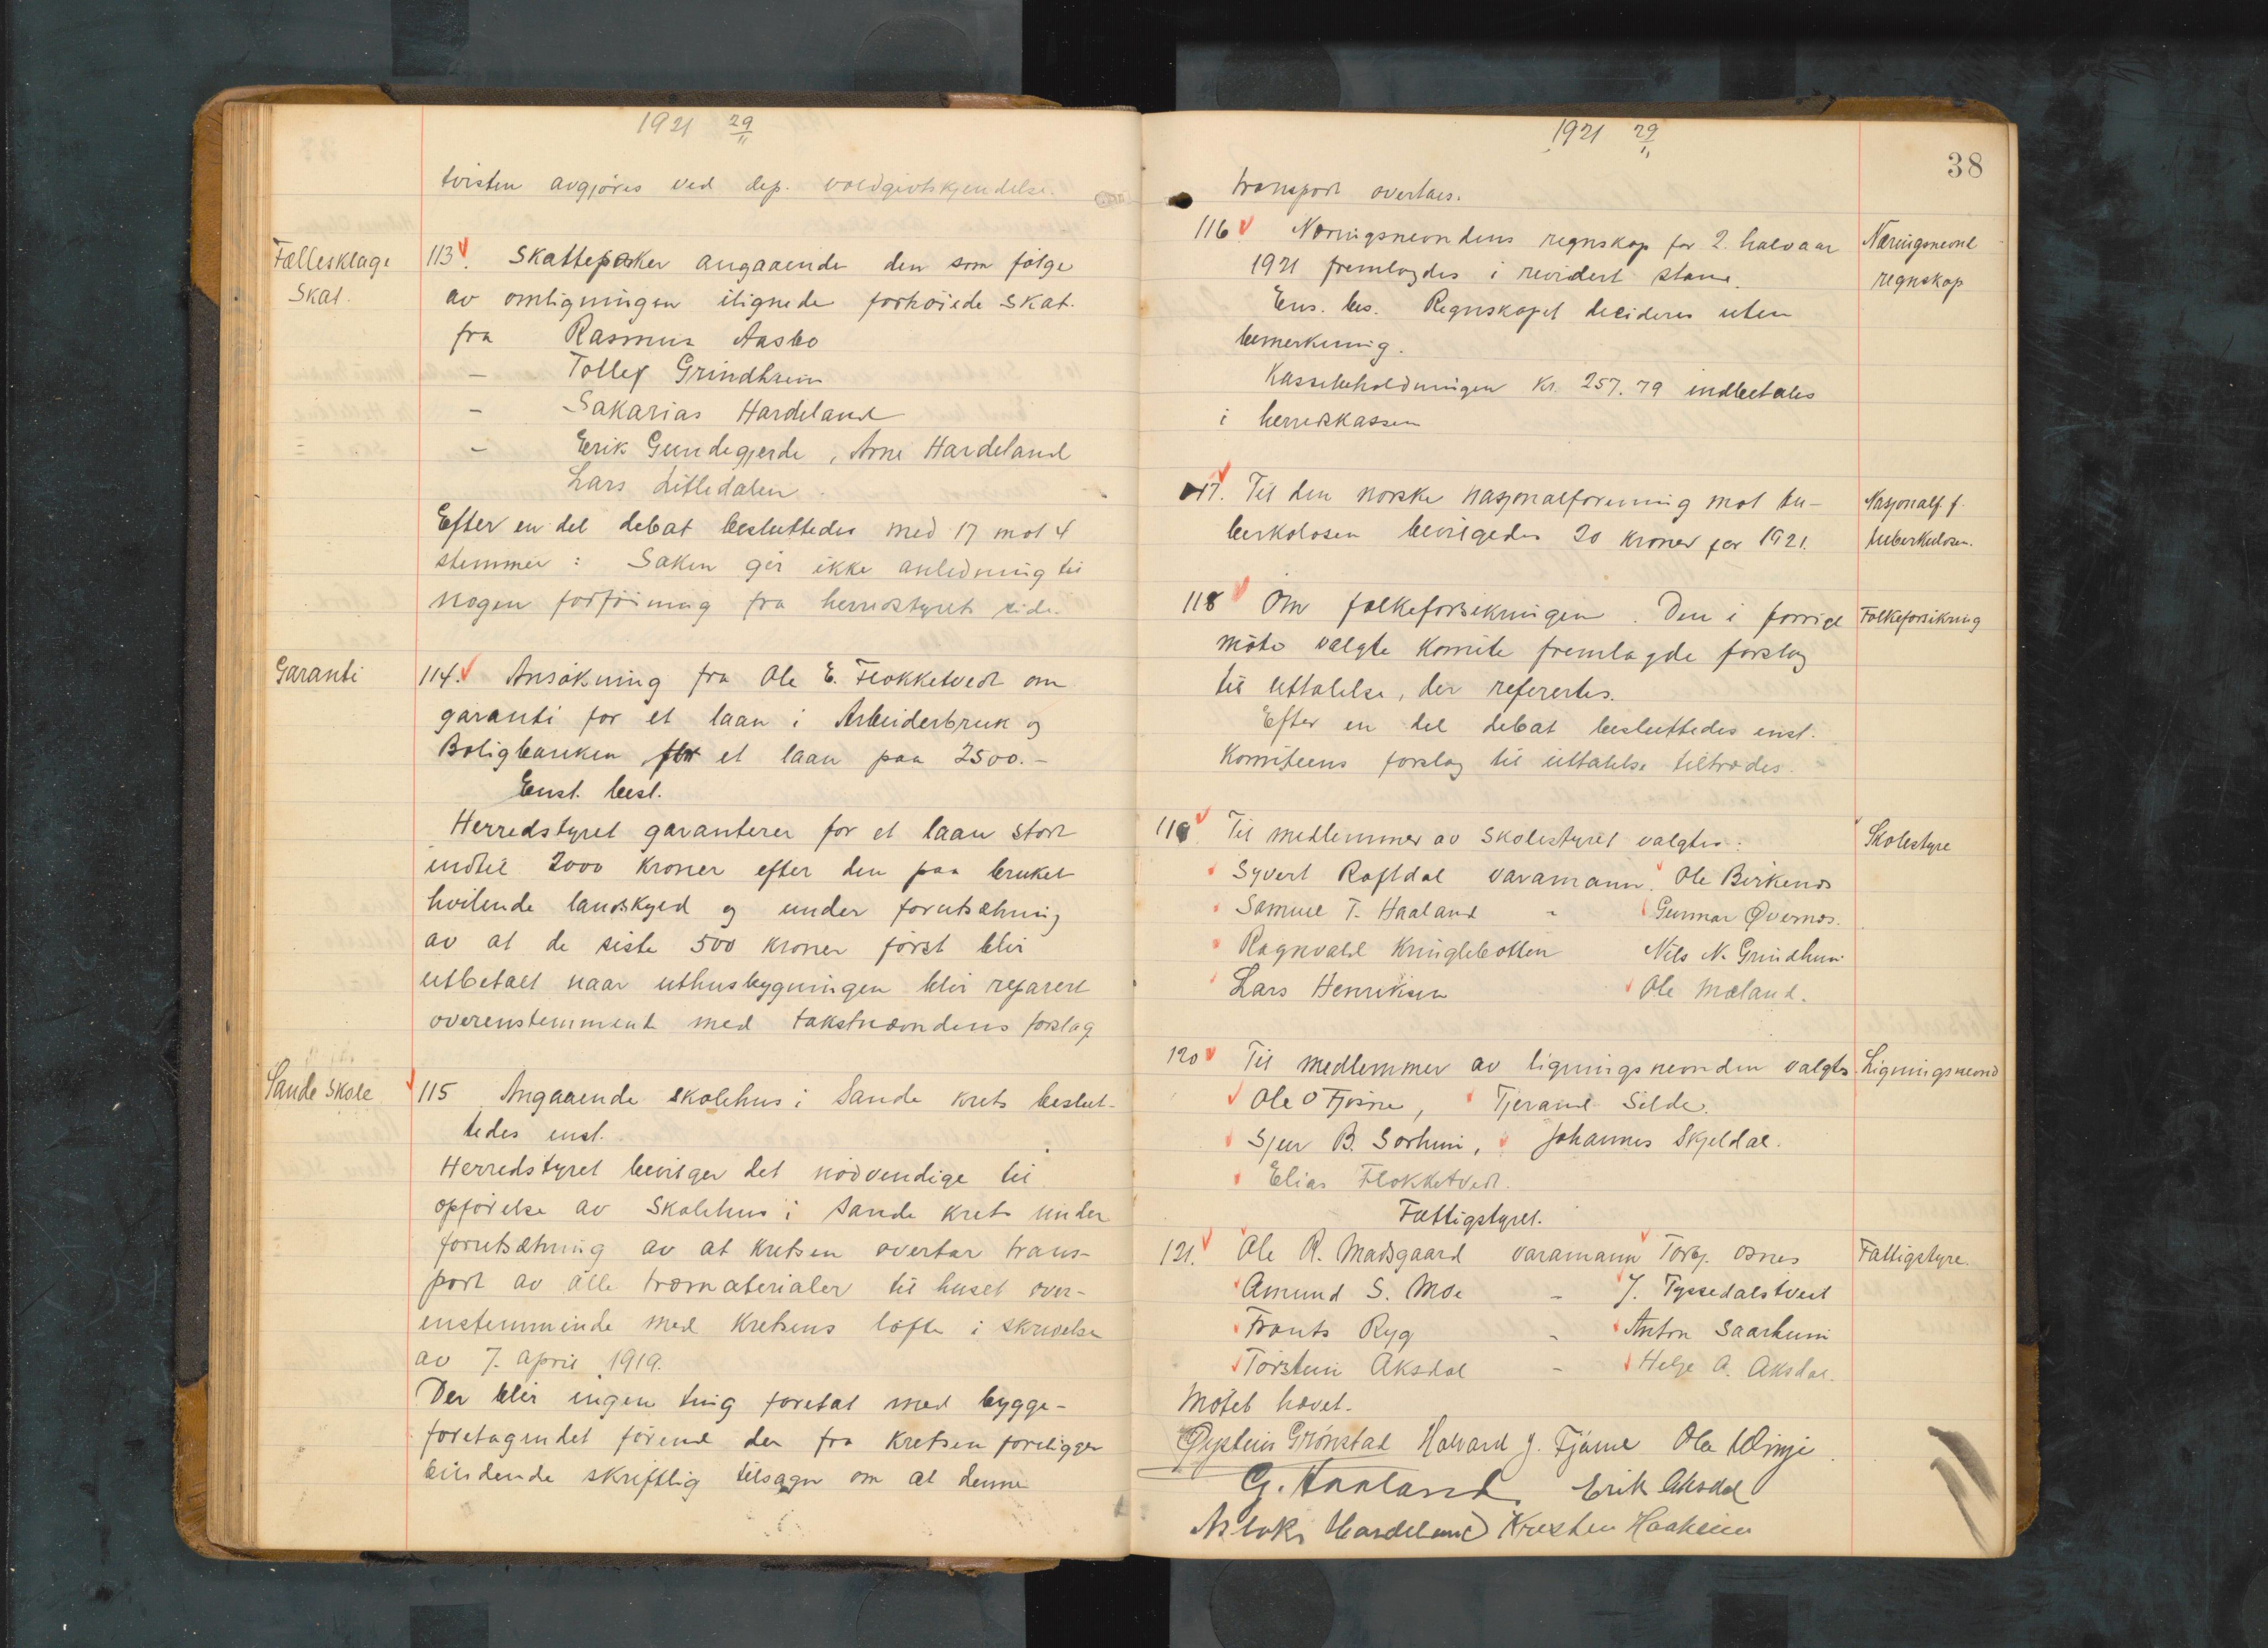 1921 29/11
tvisten avgjøres ved dep. voldgivtskjendelse.
Fællesklage
Skat.
113. Skattepasker angaaende den som følge
av omligningen ilignede forhøiede skat.
fra Rasmus Aasbo
- Tollef Grindheim
- Sakarias Hardeland
- Erik Gundegjerde, Arne Hardeland
Lars Litledalen.
Efter en del debat besluttedes med 17 mot 4
stemmer: Saken gir ikke anledning til
nogen forføining fra herredstyrets side.
Garanti
114. Ansøkning fra Ole E. Flokketvedt om
garanti for et laan i Arbeiderbruk og
Boligbanken for et laan paa 2500.-
Enst. besl.
Herredstyret garanterer for et laan stort
indtil 2000 kroner efter den paa bruket
hvilende landskyld og under forutsætning
av at de siste 500 kroner først blir
utbetalt naar uthusbygningen blir reparert
overenstemmende med takstnævndens forslag
Sande skole
115 Angaaende skolehus i Sande krets beslut-
tedes enst.
Herredstyret bevilger det nødvendige til
opførelse av Skolehus i Sande krets under
forutsætning av at kretsen overtar trans-
port av alle træmaterialer til huset over-
enstemmende med kretsens løfte i skrivelse
av 7. april 1919.
Der blir ingen ting foretat med bygge-
foretagendet førend der fra kretsen foreligger
bindende skriftlig tilsagn om at denne
1921 29/11
38
transport overtaes.
116. Næringsnevndens regnskap for 2. halvaar
1921 fremlagdes i revidert stand.
Ens. bes. Regnskapet decideres uten
bemerkning.
Kassebeholdningen kr. 257.79 indbetales
i herredskassen
Næringsnevnd
regnskap
117. Til den norske nasjonalforening mot tu-
berkolosen bevilgedes 20 kroner for 1921.
Nasjonalf. f.
tuberkulosen.
118 Om folkeforsikringen. Den i forrige
møte valgte komite fremlagde forslag
til uttalelse, der refertes.
Efter en del debat besluttedes enst.
Komiteens forslag til uttalelse tiltrædes.
Folkeforsikring
119 Til medlemmer av skolestyret valgtes:
Syvert Raftdal varamann Ole Birkenæs
Samuel T. Haaland - Gunnar Øvernæs.
Ragnvald Kringlebotten Nils N. Grindheim
Lars Henriksen Ole Mæland.
Skolestyre
120 Til medlemmer av ligningsnevnden valgtes
Ole O Fjøsne, Tjerand Silde.
Sjur B. Sørhuni, Johannes Skjeldal.
Elias Flokketvedt.
Ligningsnevnd
Fattigstyret.
121. Ole R. Madsgaard varamann Torbj. Osnes
Amund S. Moe - J. Tyssedalstvedt
Frants Ryg - Anton Saarheim
Torstein Aksdal - Helge A. Aksdal.
Fattigstyre.
Møtet hævet.
Øystein Grønstad Halvard J. Fjæme Ole Winje
G. Haaland Erik Aksdal
Aslak Hardeland Kristen Haaheim